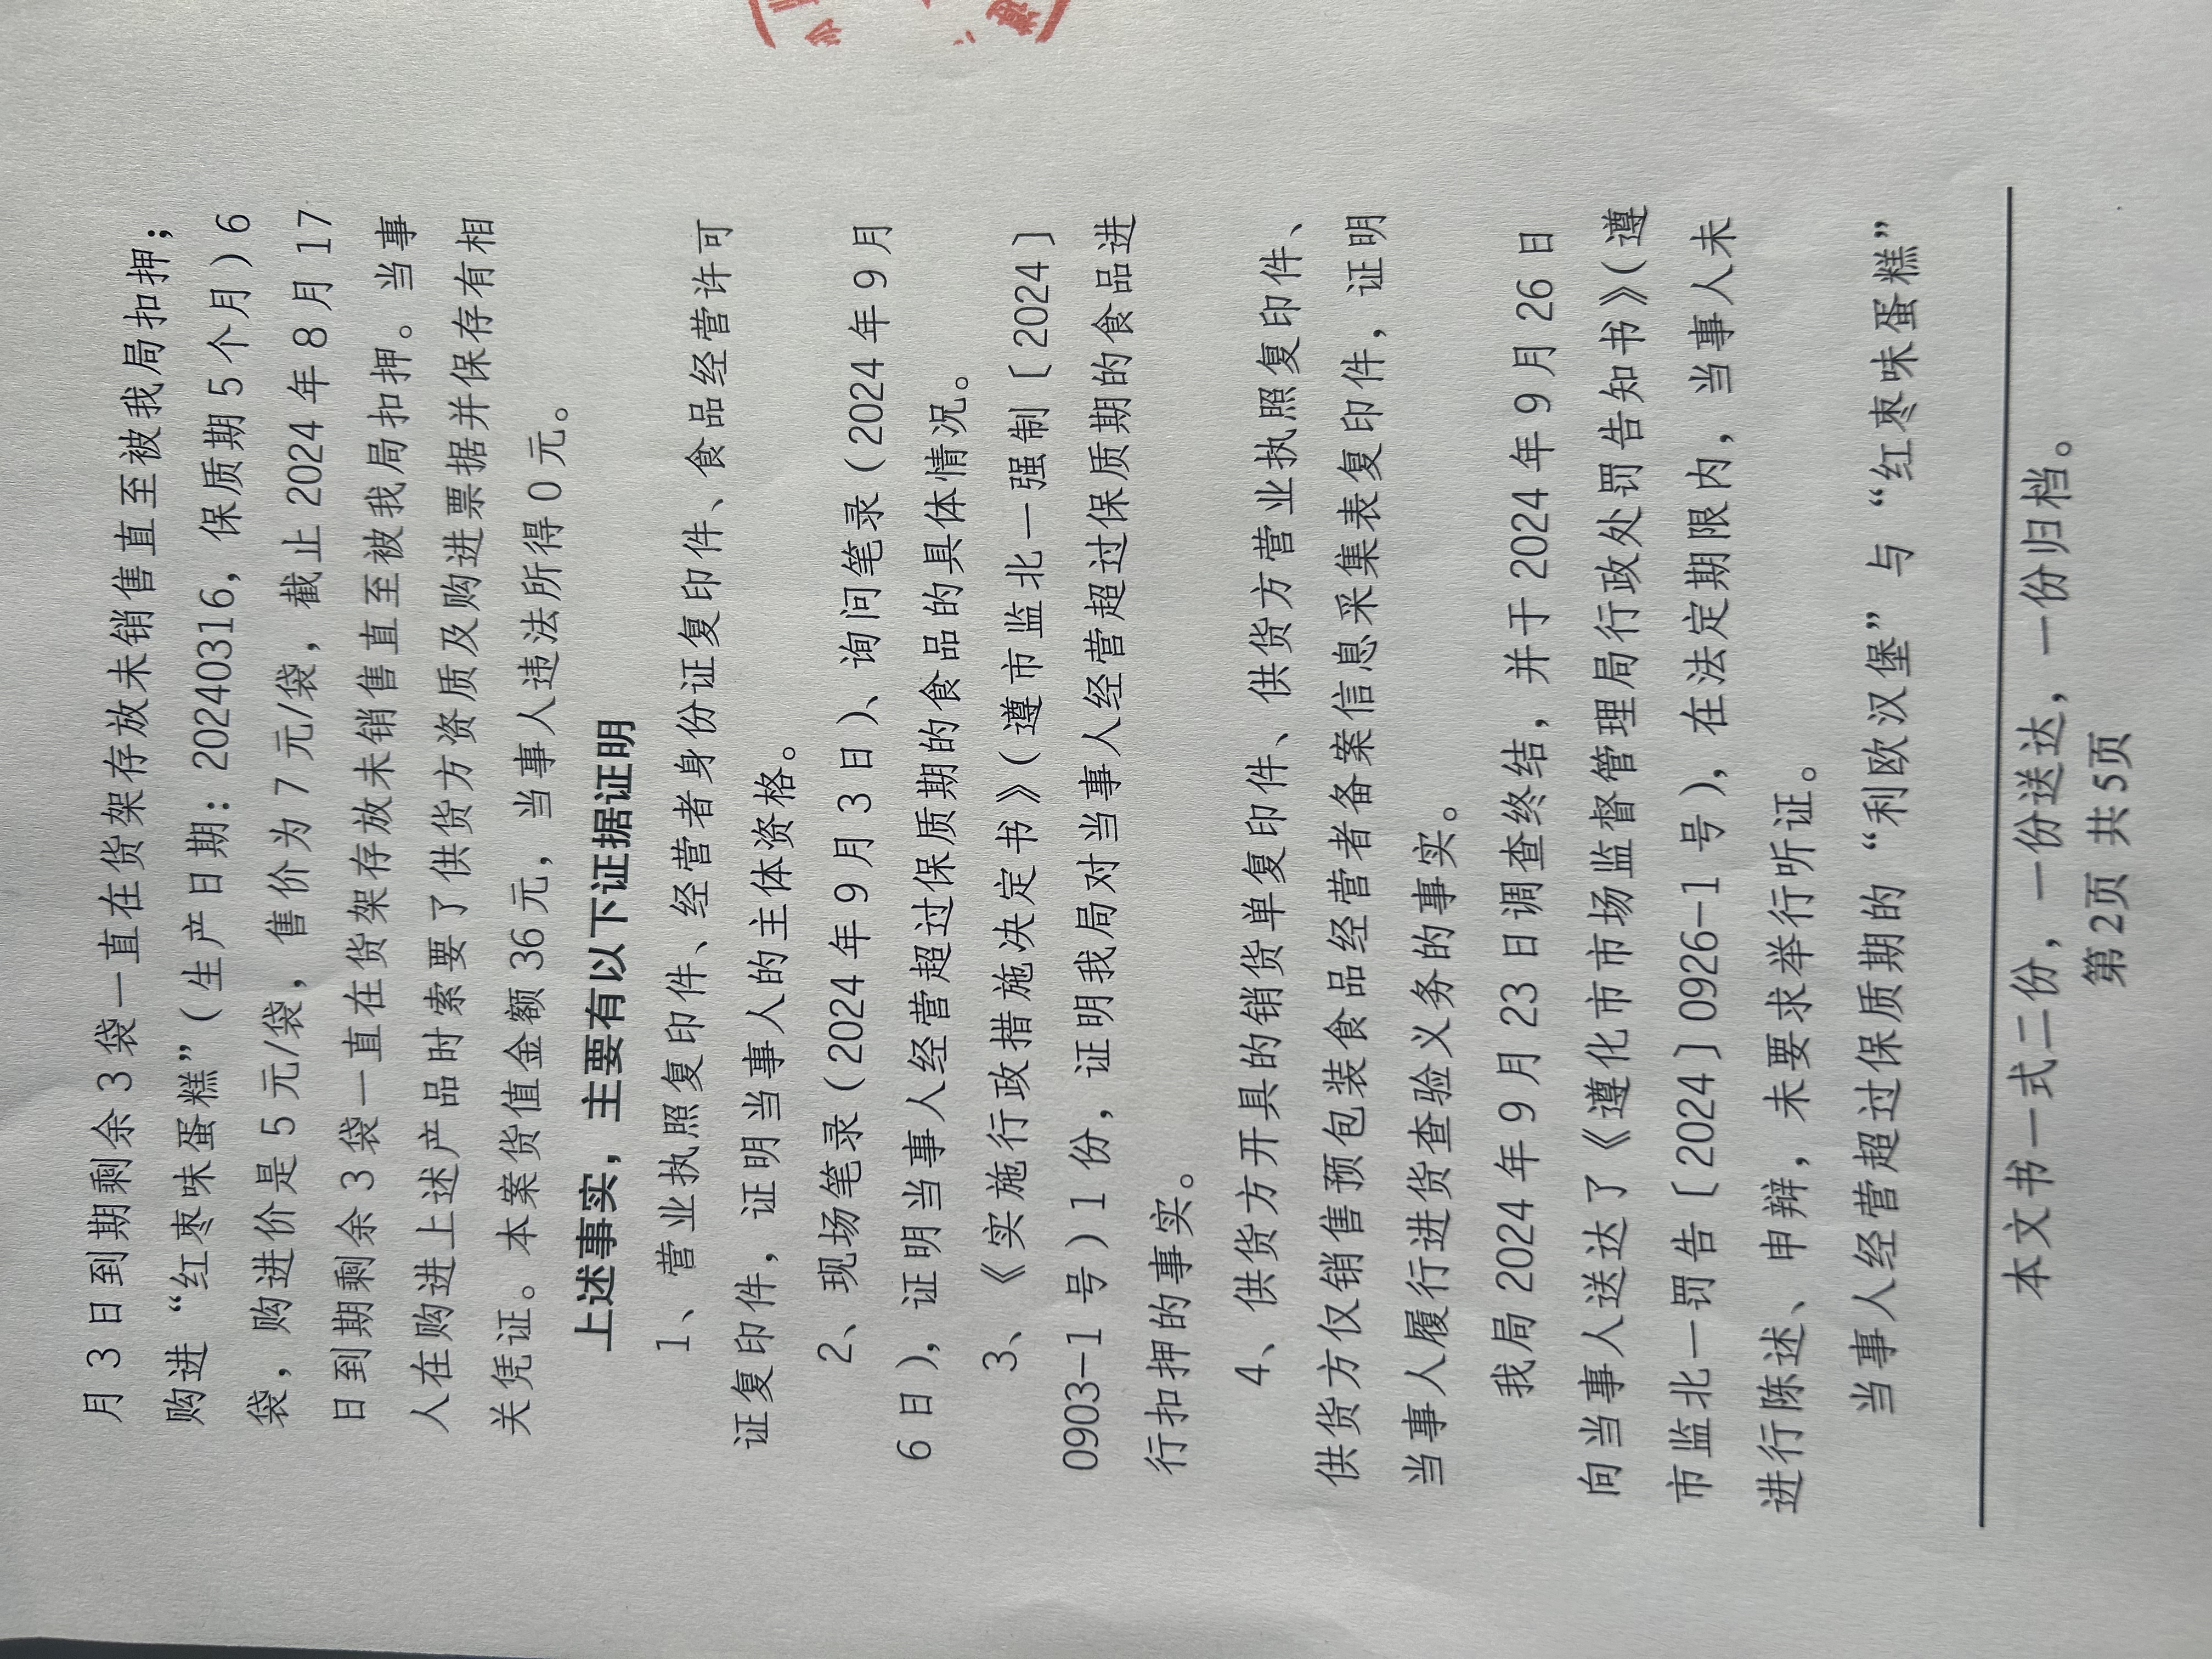 月 3 日到期剩余 3 袋一直在货架存放未销售直至被我局扣押；
购进“红枣味蛋糕”（生产日期：20240316，保质期 5 个月）6
袋，购进价是 5 元/袋，售价为 7 元/袋，截止 2024 年 8 月 17
日到期剩余 3 袋一直在货架存放未销售直至被我局扣押。当事
人在购进上述产品时索要了供货方资质及购进票据并保存有相
关凭证。本案货值金额 36 元，当事人违法所得 0 元。
上述事实，主要有以下证据证明
1、营业执照复印件、经营者身份证复印件、食品经营许可
证复印件，证明当事人的主体资格。
2、现场笔录（2024 年 9 月 3 日）、询问笔录（2024 年 9 月
6 日），证明当事人经营超过保质期的食品的具体情况。
3、《实施行政措施决定书》（遵市监北一强制〔2024〕
0903-1 号）1 份，证明我局对当事人经营超过保质期的食品进
行扣押的事实。
4、供货方开具的销货单复印件、供货方营业执照复印件、
供货方仅销售预包装食品经营者备案信息采集表复印件，证明
当事人履行进货查验义务的事实。
我局 2024 年 9 月 23 日调查终结，并于 2024 年 9 月 26 日
向当事人送达了《遵化市市场监督管理局行政处罚告知书》（遵
市监北一罚告〔2024〕0926-1 号），在法定期限内，当事人未
进行陈述、申辩，未要求举行听证。
当事人经营超过保质期的“利欧汉堡”与“红枣味蛋糕”
本文书一式二份，一份送达，一份归档。
第2页 共5页